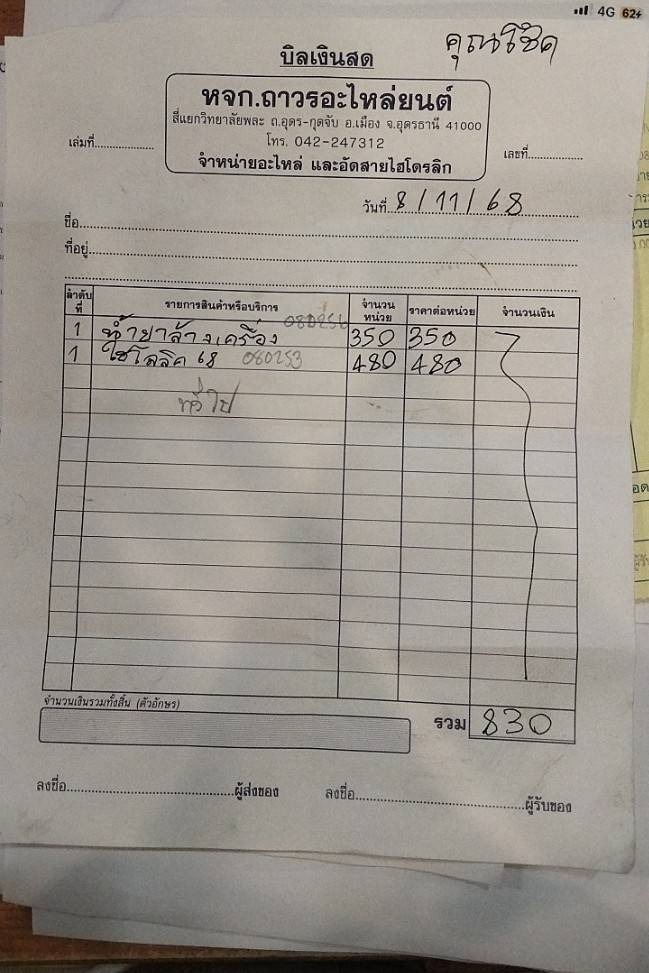 4G 62
คุณโชค
บิลเงินสด
หจก.ถาวรอะไหล่ยนต์
สี่แยกวิทยาลัยพละ ถ.อุดร-กุดจับ อ.เมือง จ.อุดรธานี 41000
โทร. 042-247312
จำหน่ายอะไหล่ และอัดสายไฮโดรลิก
เล่มที่
เลขที่
วันที่ 8/11/68
ชื่อ
ที่อยู่
ลำดับที่ รายการสินค้าหรือบริการ จำนวนหน่วย ราคาต่อหน่วย จำนวนเงิน
1 น้ำยาล้างเครื่อง 080254 350 350
1 ไฮโดลลิค 68 080253 480 480
ทั่วไป
จำนวนเงินรวมทั้งสิ้น (ตัวอักษร)
รวม 830
ลงชื่อ ผู้ส่งของ ลงชื่อ ผู้รับของ